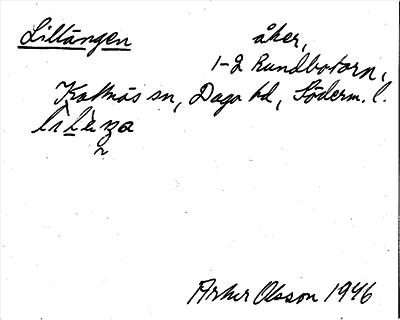 Lillängen åker,
1-2 Rundbotorn,
Kattnäs sn, Daga hd, Söderm. l.
Olsson 1946